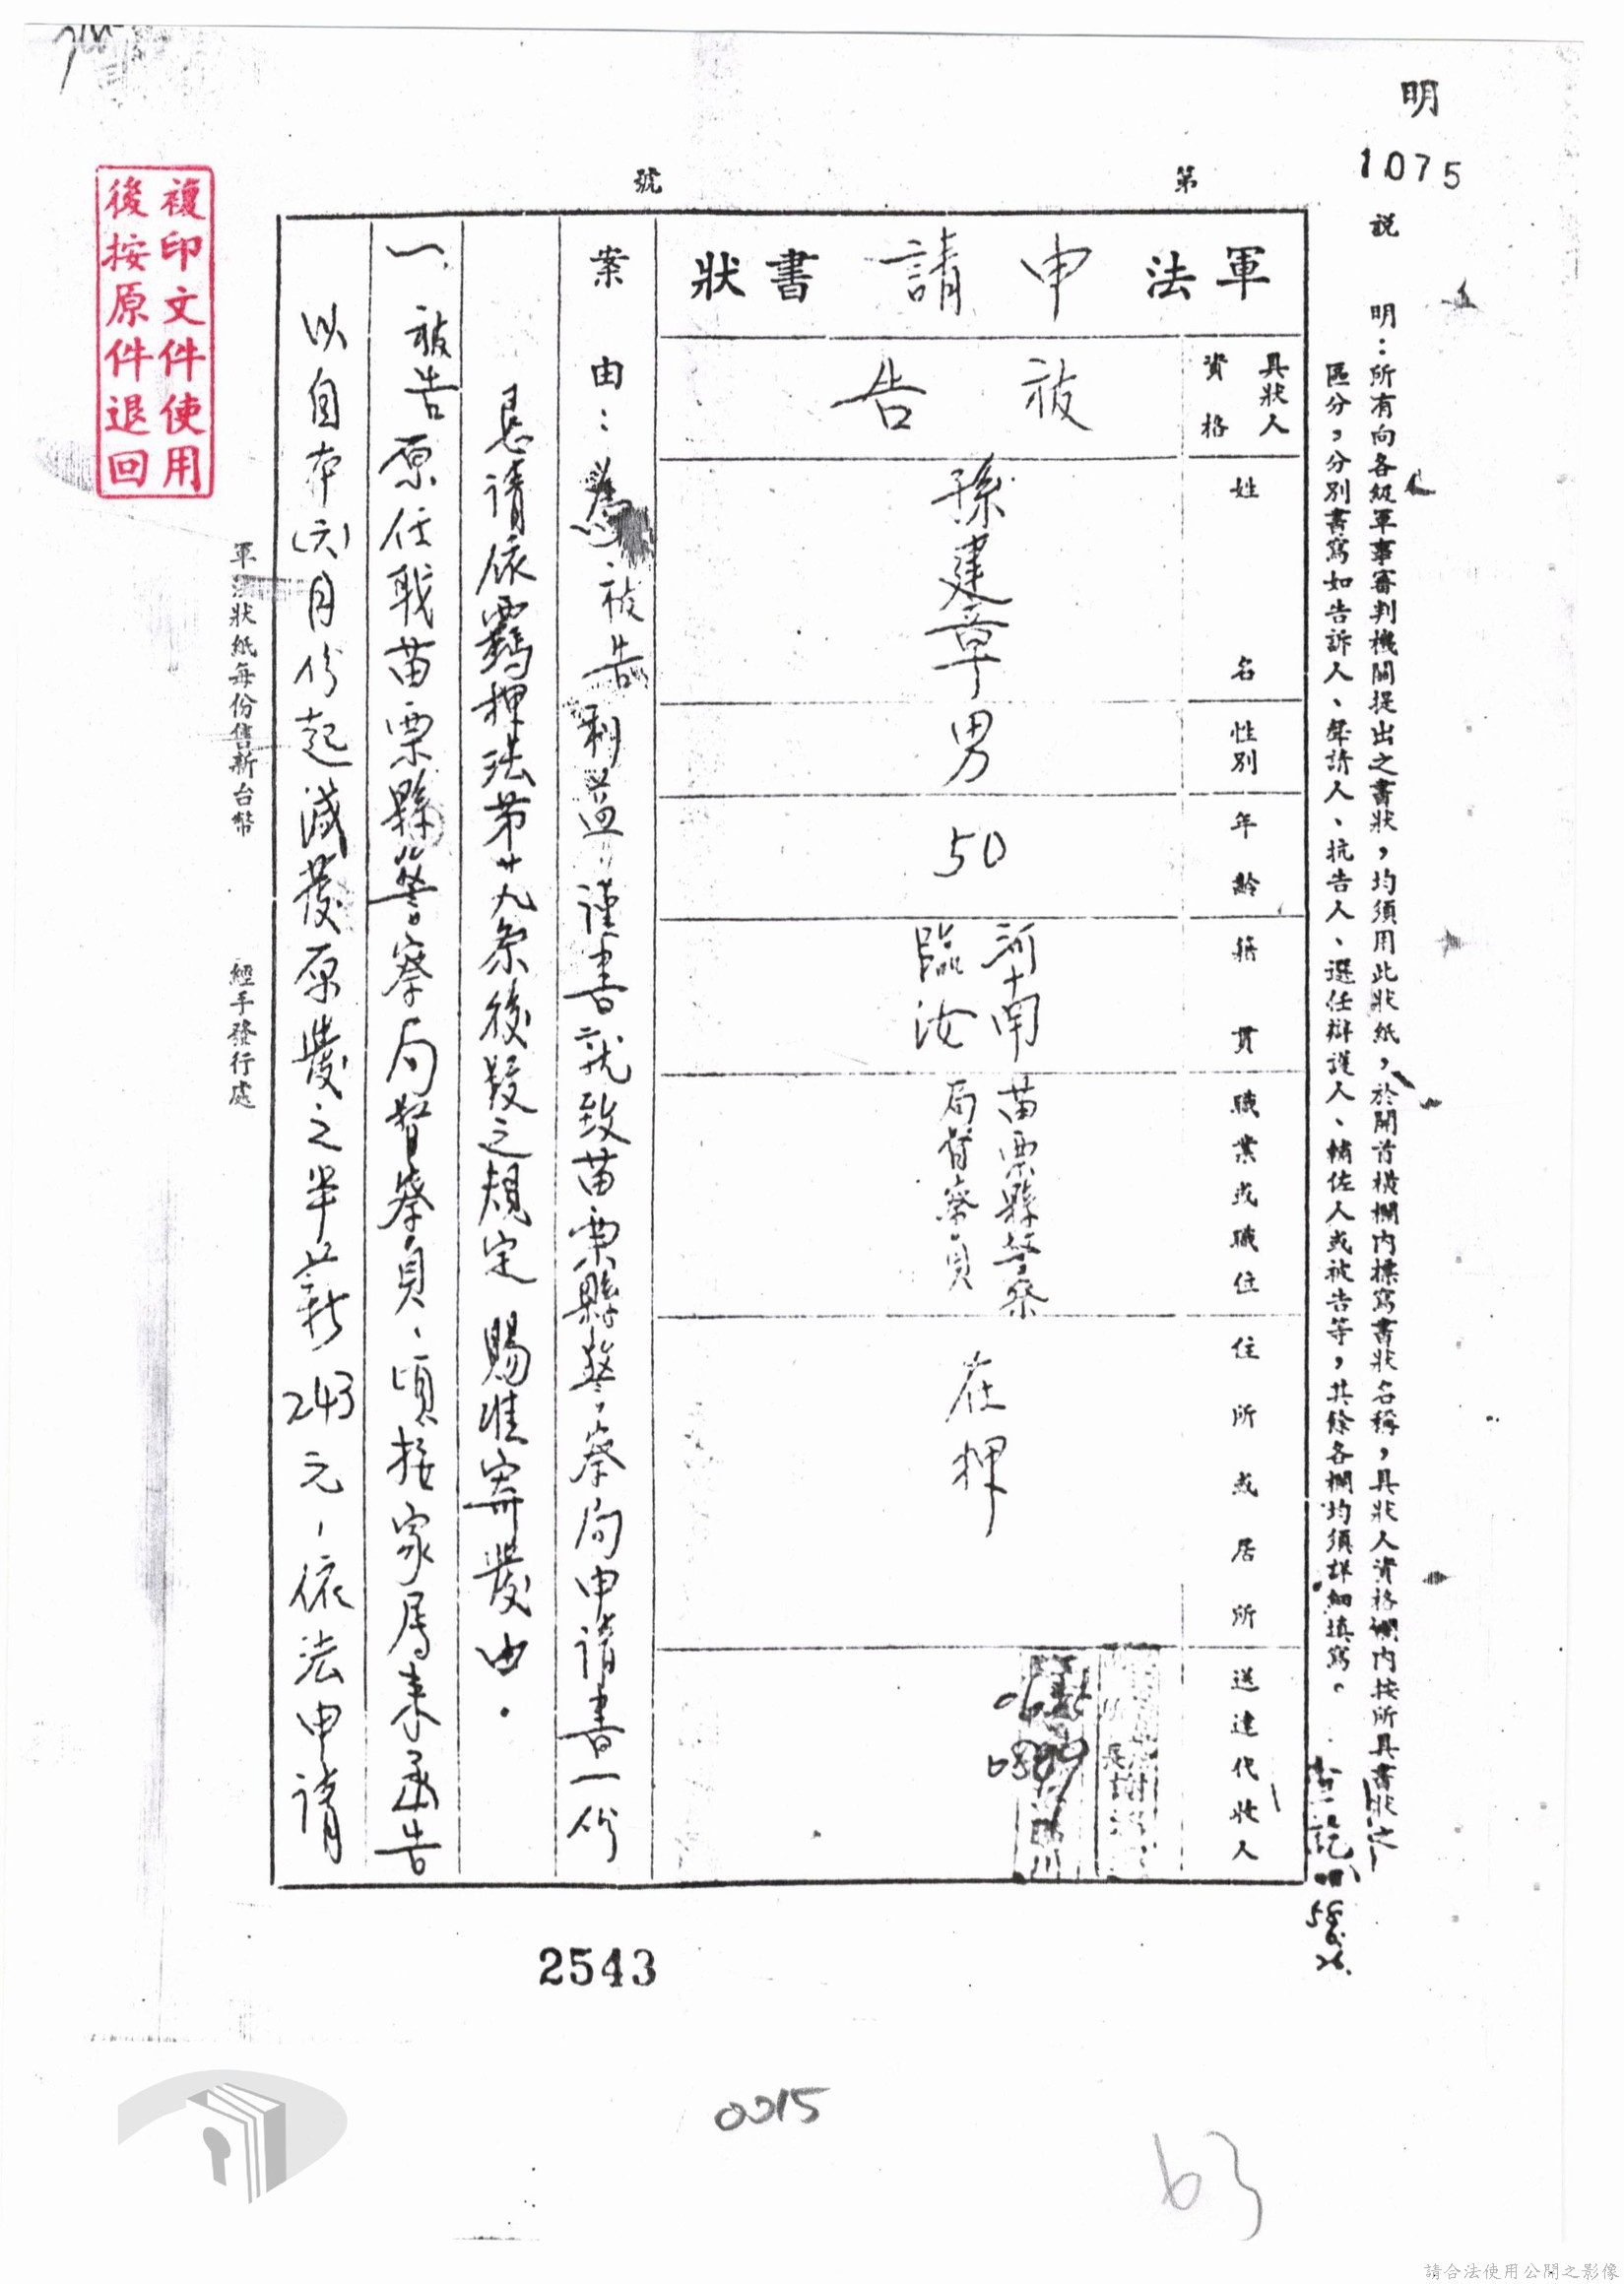 明
1075
說　明：所有向各級軍事審判機關提出之書狀，均須用此狀紙，於開首橫欄內標寫書狀名稱，具狀人資格欄內按所具書狀之
區分，分別書寫如告訴人、聲請人、抗告人、選任辯護人、輔佐人或被告等，其餘各欄均須詳細填寫。
第　號
軍法申請書狀
具狀人資格
被告
姓名
孫建章
性別
男
年齡
50
籍貫
河南
臨汝
職業或職位
苗栗縣警察
局督察員
住所或居所
在押
送達代收人
案由：為被告利益謹書就致苗栗縣警察局申請書一份
懇請依羈押法第廿九條後段之規定 賜准寄發由。
一、被告原任職苗栗縣警察局督察員、頃接家屬來函告
以自本(六)月份起減發原發之半薪243元，依法申請
軍法狀紙每份售新台幣
經手發行處
複印文件使用
後按原件退回
2543
0015
63
請合法使用公開之影像